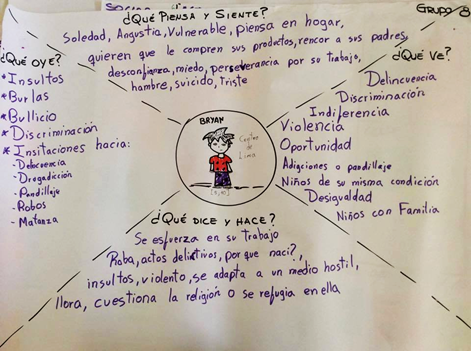 ¿Qué Piensa y Siente?
Grupo 8
Soledad, Angustia, Vulnerable, piensa en hogar,
quieren que le compren sus productos, rencor a sus padres,
desconfianza, miedo, perseverancia por su trabajo,
hambre, suicido, Triste
¿Qué Oye?
* Insultos
* Burlas
* Bullicio
* Discriminación
* Insitaciones hacia:
- Delecuencia
- Drogadicción
- Pandillaje
- Robos
- Matanza
¿Qué Ve?
Delincuencia
Discriminación
Indiferencia
Violencia
Oportunidad
Adigciones o pandillaje
Niños de su misma condición
Desigualdad
Niños con Familia
BRYAN
Centro de
Lima
¿Qué dice y hace?
Se esfuerza en su Trabajo
Roba, actos delictivos, por que naci?,
insultos, violento, se adapta a un medio hostil,
llora, cuestiona la religión o se refugia en ella